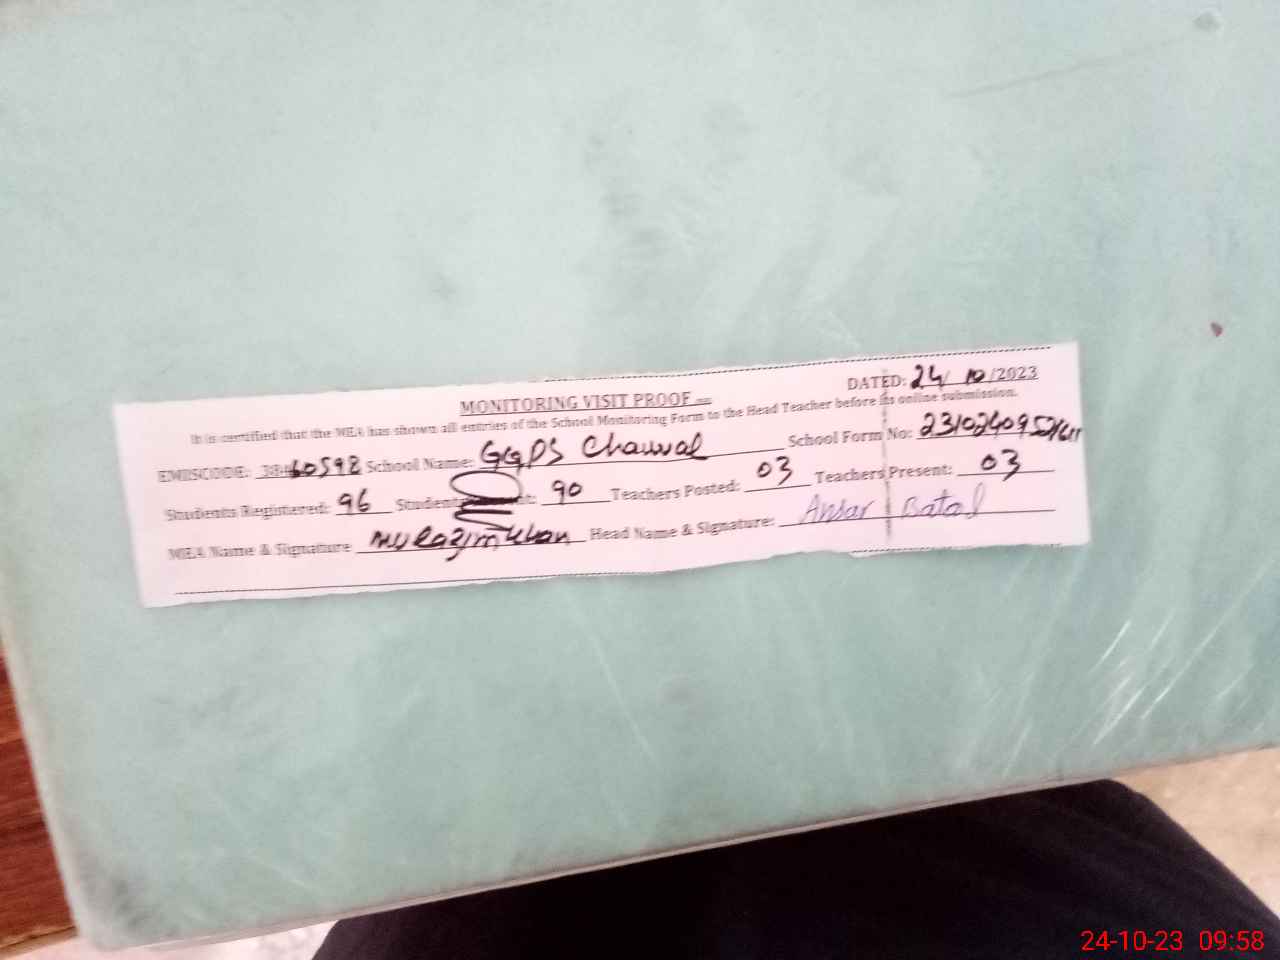 DATED: 24/ 10 /2023
MONITORING VISIT PROOF
It is certified that the MEA has shown all entries of the School Monitoring Form to the Head Teacher before its online submission.
EMISCODE: 60598 School Name: GGPS Chawal School Form No:
Students Registered: 96 90 Teachers Posted: 03 Teachers Present: 03
MEA Name & Signature Khan Head Name & Signature: Ansar Batol
24-10-23 09:58